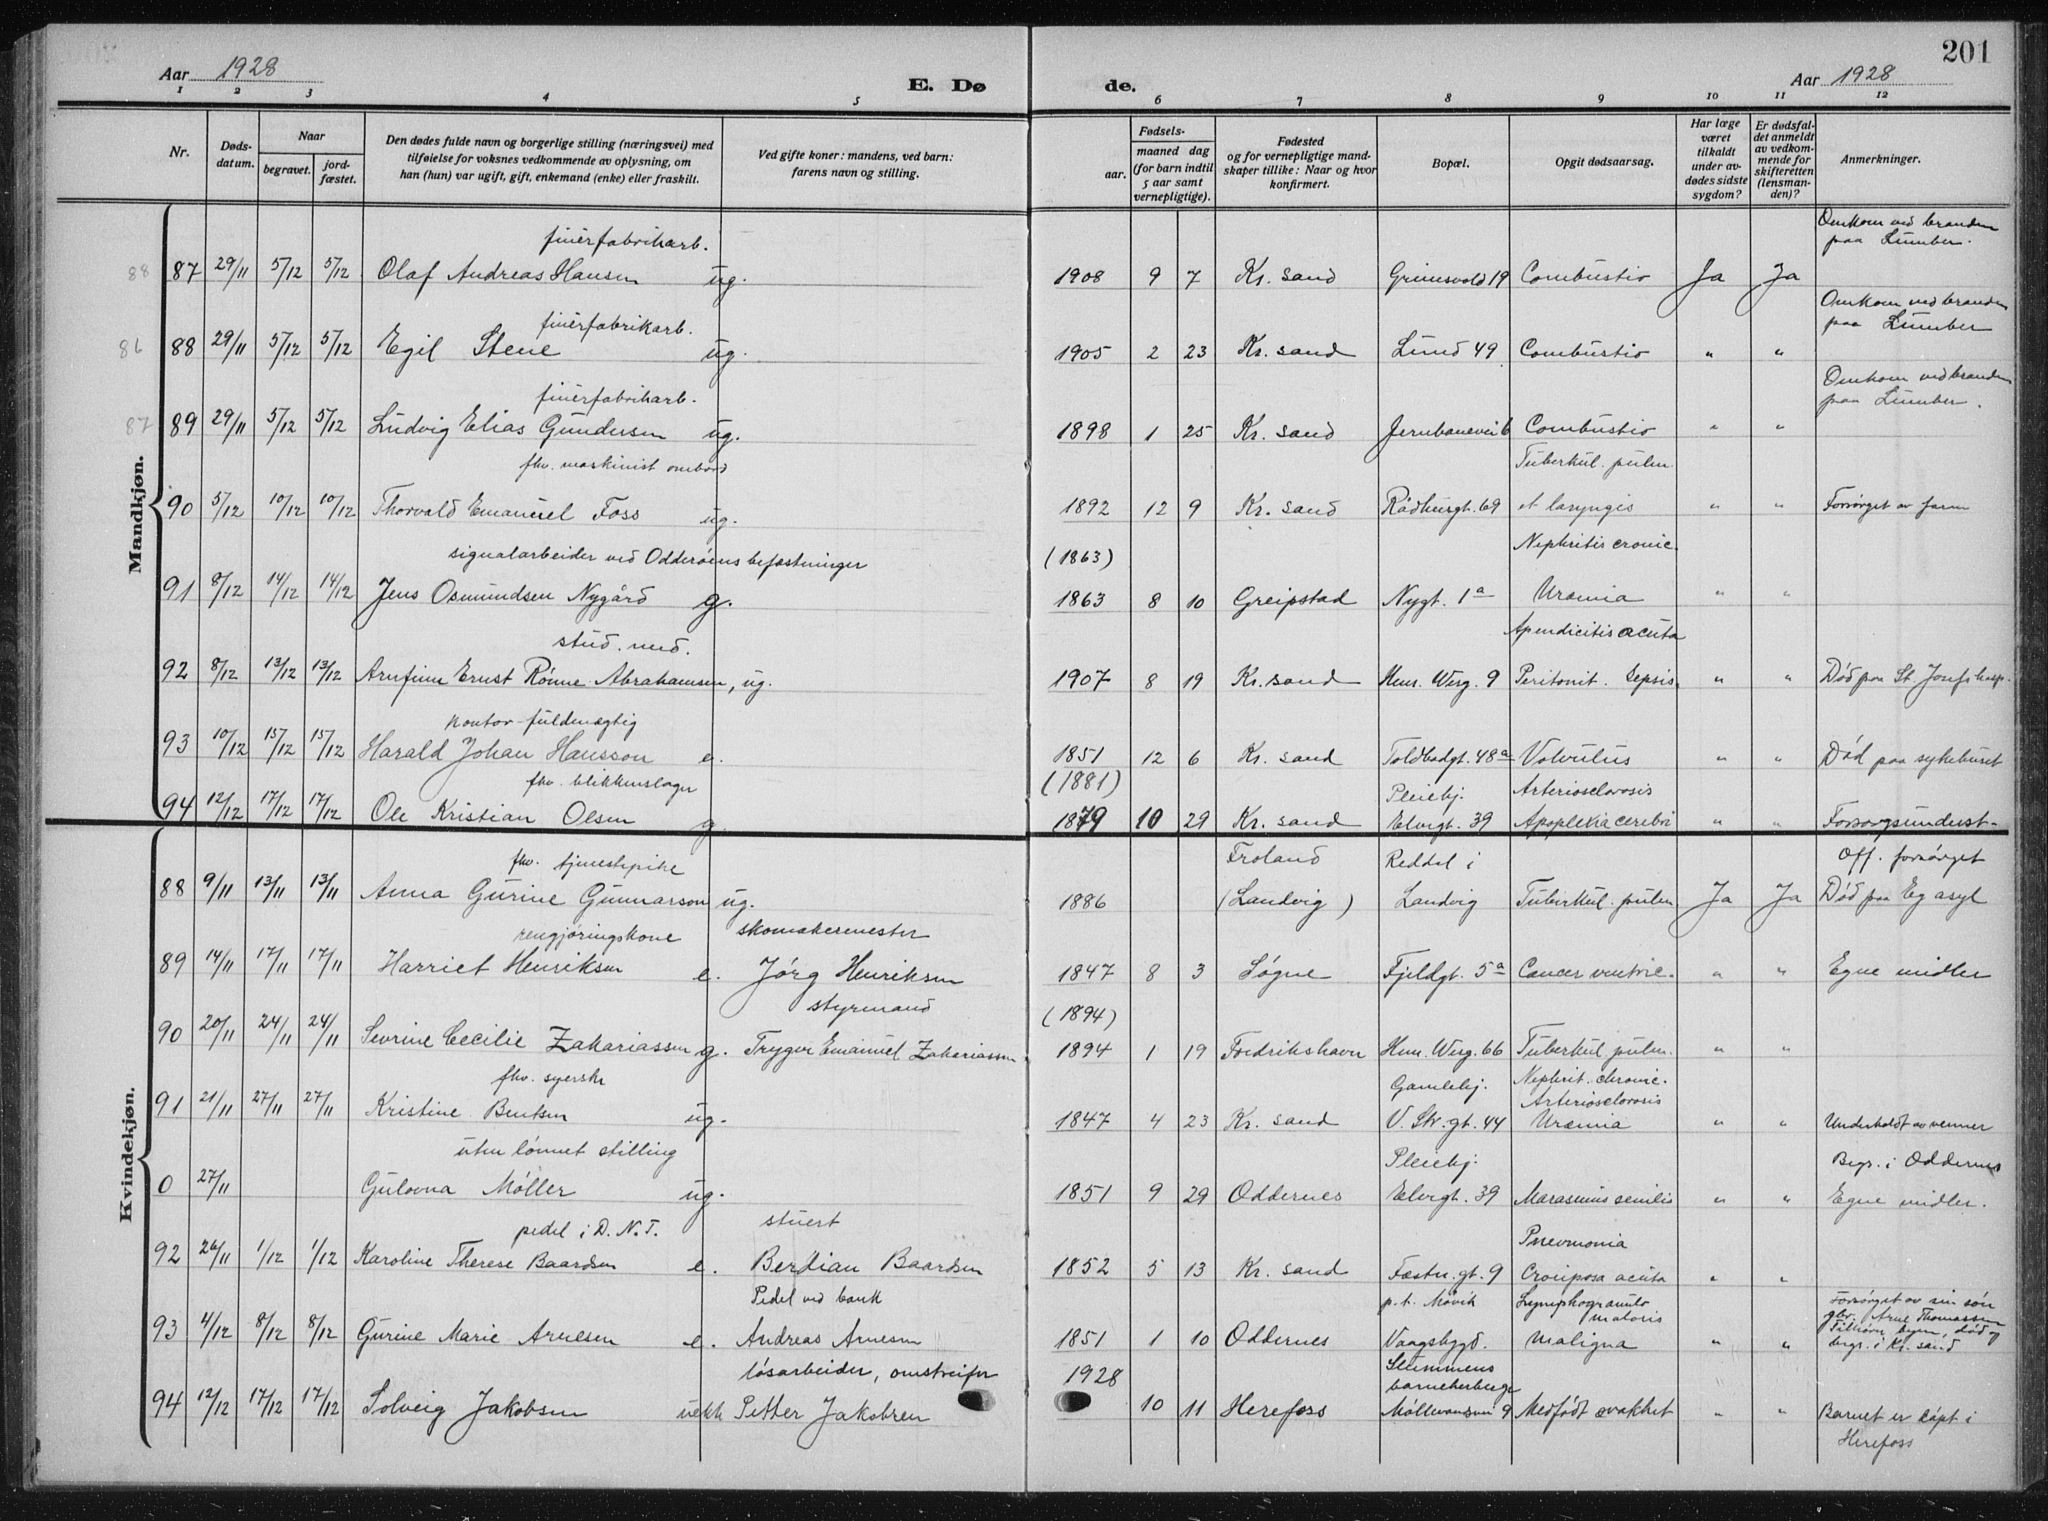 201
Aar 1928 E. Dø de. Aar 1928
1 2 3 4 5 6 7 8 9 10 11 12
Nr. Døds-datum. Naar begravet. jord-fæstet. Den dødes fulde navn og borgerlige stilling (næringsvei) med tilføielse for voksnes vedkommende av oplysning, om han (hun) var ugift, gift, enkemand (enke) eller fraskilt. Ved gifte koner: mandens, ved barn: farens navn og stilling. Fødsels- aar. maaned dag (for barn indtil 5 aar samt vernepligtige). Fødested og for vernepligtige mand-skaper tillike: Naar og hvor konfirmert. Bopæl. Opgit dødsaarsag. Har læge været tilkaldt under av-dødes sidste sygdom? Er dødsfal-det anmeldt av vedkom-mende for skifteretten (lensman-den)? Anmerkninger.
Mandkjøn.
finérfabrikarb. Omkom ved branden paa Lumber.
88 87 29/11 5/12 5/12 Olaf Andreas Hansen ug. 1908 9 7 Kr. sand Grimsvold 19 Combustio Ja Ja
finérfabrikarb. Omkom ved branden paa Lumber
86 88 29/11 5/12 5/12 Egil Stene ug. 1905 2 23 Kr. sand Lund 49 Combustio " "
finérfabrikarb. Omkom ved branden paa Lumber.
87 89 29/11 5/12 5/12 Ludvig Elias Gundersen ug. 1898 1 25 Kr. sand Jernbanevei 6 Combustio " "
fhv. maskinist ombord Tuberkul. pulm.
90 5/12 10/12 10/12 Thorvald Emanuel Foss ug. 1892 12 9 Kr. sand Rådhusgt. 69 et laryngis " " Forsørget av faren
signalarbeider ved Odderøens befæstninger (1863) Nephritis cronic.
91 8/12 14/12 14/12 Jens Osmundsen Nygård g. 1863 8 10 Greipstad Nygt. 1a Uræmia " "
stud. med. Apendicitis acuta
92 8/12 13/12 13/12 Arnfinn Ernst Rönne Abrahamsen, ug. 1907 8 19 Kr. sand Henr. Werg. 9 Peritonit. Sepsis. " " Död paa St. Josefs hosp.
kontor-fuldmægtig
93 10/12 15/12 15/12 Harald Johan Hansson e. 1851 12 6 Kr. sand Toldbodgt. 48a Volvulus " " Död paa sykehuset
fhv. blikkenslager (1881) Pleiehj. Arteriosclorosis
94 12/12 17/12 17/12 Ole Kristian Olsen g. 1879 10 29 Kr. sand Elvegt. 39 Apoplexia cerebri " " Forsorgsunderst.
Kvindekjøn.
fhv. tjenestepike Froland Reddal i Off. forsörget
88 9/11 13/11 13/11 Anna Gurine Gunnarson ug. 1886 (Landvig) Landvig Tuberkul. pulm Ja Ja Död paa Eg asyl
rengjøringskone skomakermester
89 14/11 17/11 17/11 Harriet Henriksen e. Jörg Henriksen 1847 8 3 Søgne Fjeldgt. 5a Cancer ventric. " " Egne midler
styrmand (1894)
90 20/11 24/11 24/11 Sevrine Cecilie Zakariassen g. Trygve Emanuel Zakariassen 1894 1 19 Fredrikshavn Hen. Werg. 66 Tuberkul pulm. " "
fhv. syerske Gamlehj. Nephrit. chronic. Arteriosclorosis
91 21/11 27/11 27/11 Kristine Bentsen ug. 1847 4 23 Kr. sand V. Str. gt. 44 Uræmia " " Underholdt av venner
uten lønnet stilling Pleiehj. Begr. i Oddernes
0 27/11 Gulovna Möller ug. 1851 9 29 Oddernes Elvegt. 39 Marasmus senilis " " Egne midler.
pedel i D. N. T. stuert Pnevmonia
92 26/11 1/12 1/12 Karoline Therese Baardsen e. Berdian Baardsen 1852 5 13 Kr. sand Fæstn. gt. 9 Crouposa acuta " "
Pedel ved bank p.t. Møvik Lymphogranulo matoris Forsørget av sin søn gbr. Arne Thomassen
93 4/12 8/12 8/12 Gurine Marie Arnesen e. Andreas Arnesen 1851 1 10 Oddernes Vaagsbygd. maligna " " Tilhører byen, død og begr. i Kr. sand
løsarbeider, omstreifer 1928 Slummens barneherberge
94 12/12 17/12 17/12 Solveig Jakobsen uekte Petter Jakobsen 10 11 Herefoss Møllevannsvei 9 Medfödt svakhet " " Barnet er döpt i Herefoss